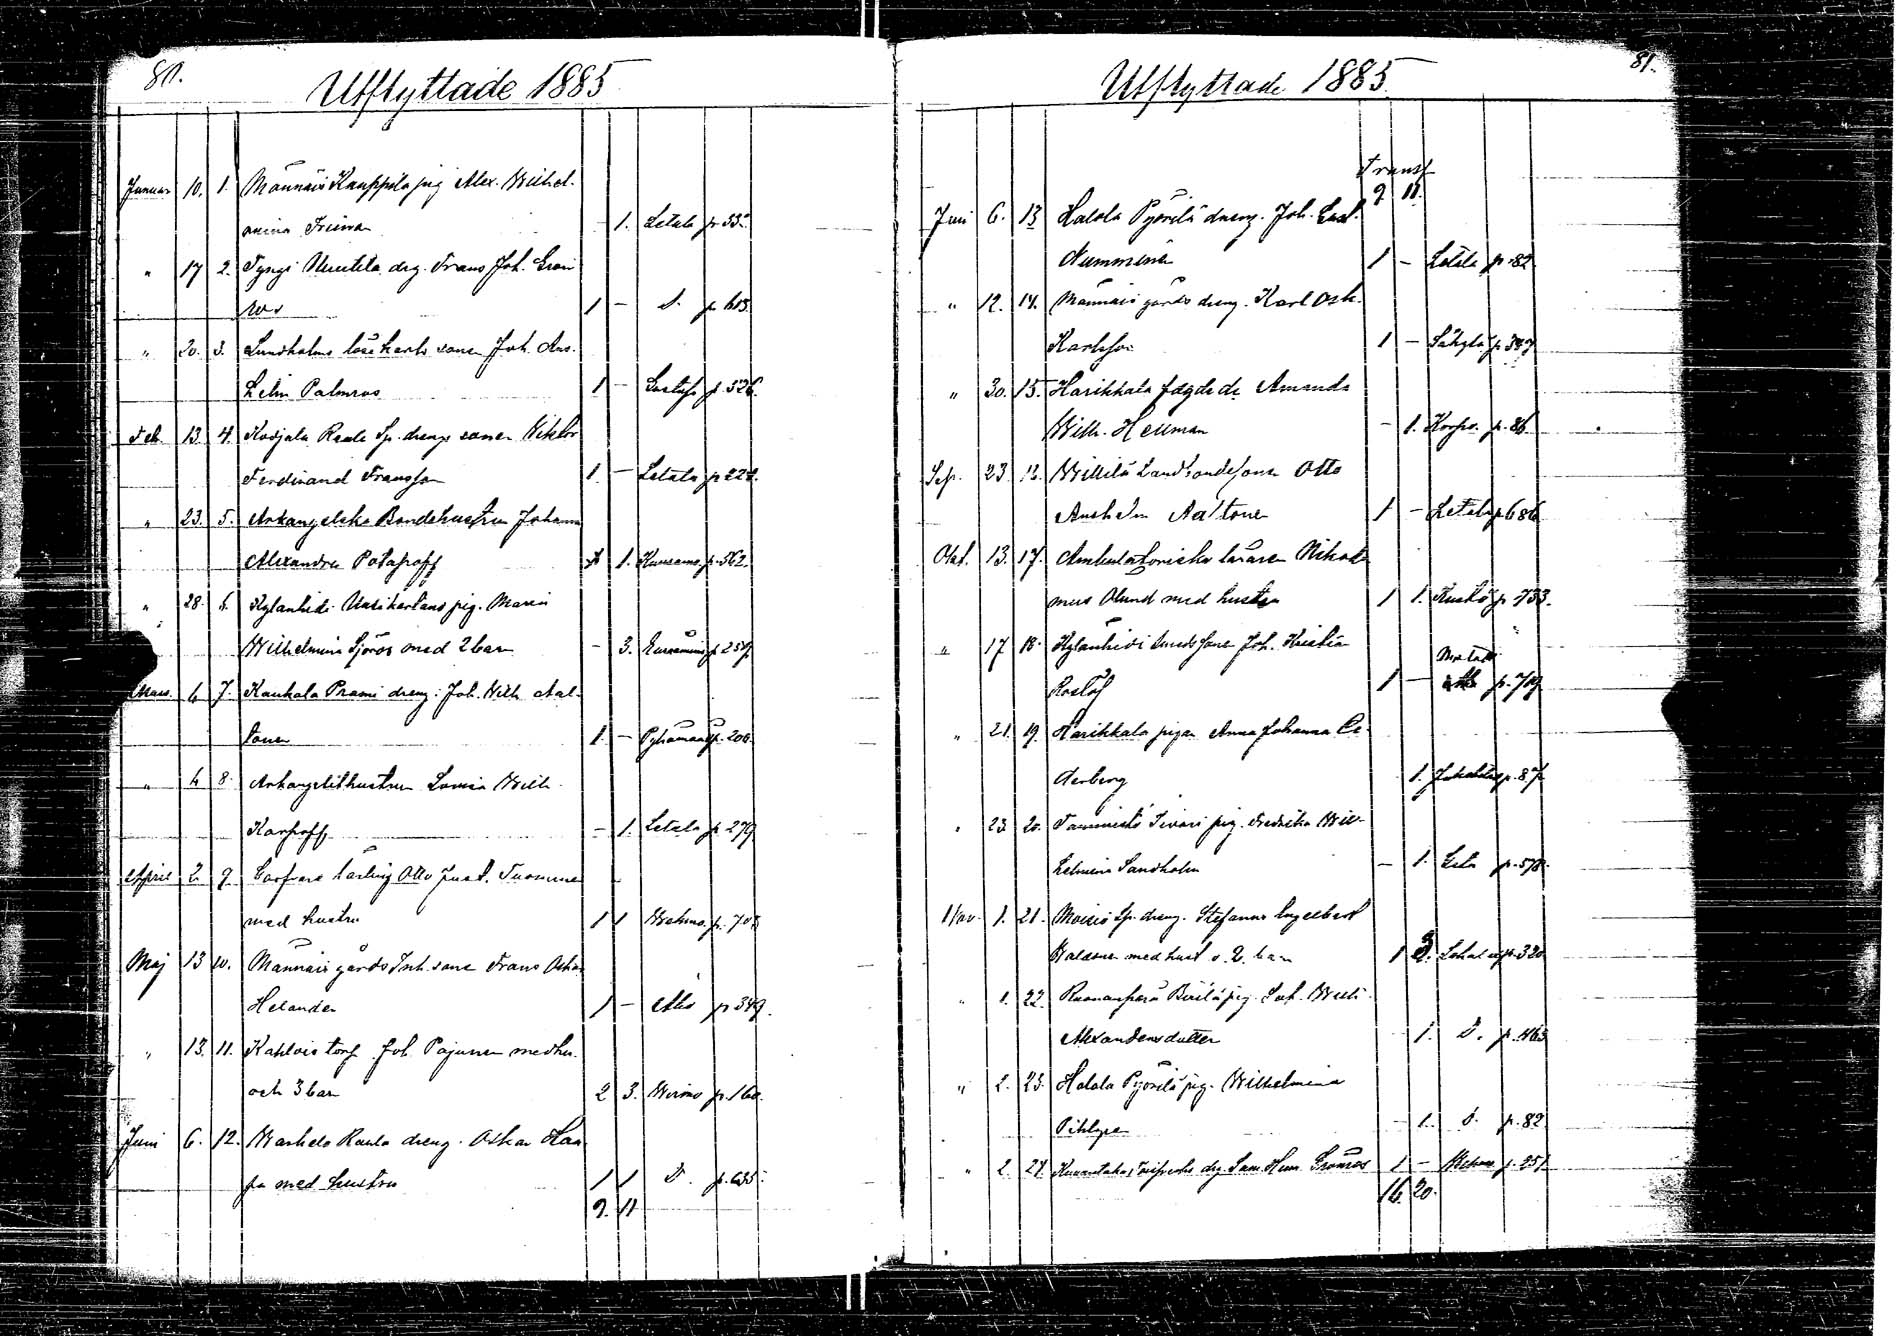 80.
Utflyttade 1885
Januar 10. 1. Männäis Kauppila pig Alex. Wilhel-
mina Friman - 1. Letala p. 33.
" 17 2. Tyngi Uusitita drg. Frans Joh. Grön
ros 1 - D. p. 613.
" 20. 3. Lundholms lösekarls sonen Joh. Ans.
helm Palmros 1 - Gustafs p. 526.
Feb. 13. 4. Kodjala Raula Sp. drengs sonen Viktor
Ferdinand Fransson 1 - Letala p. 224.
" 23. 5. Arkangelska Bondehustrun Johanna
Alexandra Potapoff 1. p. 562.
" 28. 6. Kylänhidi Uusikartano pig. Maria
Wilhelmina Sjöros med 2 barn - 3. p. 257.
Mars. 6 7. Kaukola Prami dreng. Joh. Wilh. Aal-
tonen 1. - Pyhämaa p. 200.
" 6 8. Arkangelithustrun Lovisa Wilh.
Karpoff - 1. Letala p. 279
April 2 9. Otto Just. Tuominen
med hustru 1 1 Wehmo p. 703
Maj 13 10. Männäis gårds Inh. sone Frans Oskar
Helander 1 - Åbo p. 349.
" 13. 11. Kahlois torp. Joh. Pajunen med hu.
och 3 barn 2 3. Wirmo p. 160.
Juni 6. 12. Warhela Raula dreng. Oskar Haa
pa med hustru 1 1 D. p. 635.
9. 11
81.
Utflyttade 1885
Transp
9 11.
Juni 6. 13 Halola Pyörilä dreng. Joh. Gust.
Nummelin 1 - Letala p. 82.
" 12. 14. Männäis gårds dreng. Karl Osk.
Karlsson 1 - Säkylä p. 347
" 30. 15. Harikkala fdgde dr Amanda
Wilh. Hellman - 1. Korpo. p. 86.
Sep. 23. 16. Willilä Landbondesonen Otto
Anshelm Aaltonen 1 - Letala p. 686
Okt. 13. 17. Ambulatoriska läraren Nikode
mus Ölund med hustru 1 1. Kustö p. 733.
" 17 18. Kylänhidi Unedssonen Joh. Kristian
Roslöf 1 - p. 719
" 21. 19. Harikkala pigan Anna Johanna Ce-
derberg 1. Jokela p. 87
" 23. 20. Tammisto Sivari pig. Fredrika Wil-
helmina Sandholm - 1. Leta p. 578.
Nov. 1. 21. Moisio Sp. dreng. Stefanus Engelbert
med hust o. 2. barn 1 3. Lokalax p. 320
" 1. 22. Ruonanperä Birilä pig. Joh. Wilh.
Alexandersdotter 1. D. p. 463
" 2. 23. Halola Pyörilä pig. Wilhelmina
Pihlgren - 1. D. p. 82
" 2. 24. drg. Sam. Herm. Grönros 1 - p. 251
16. 20.